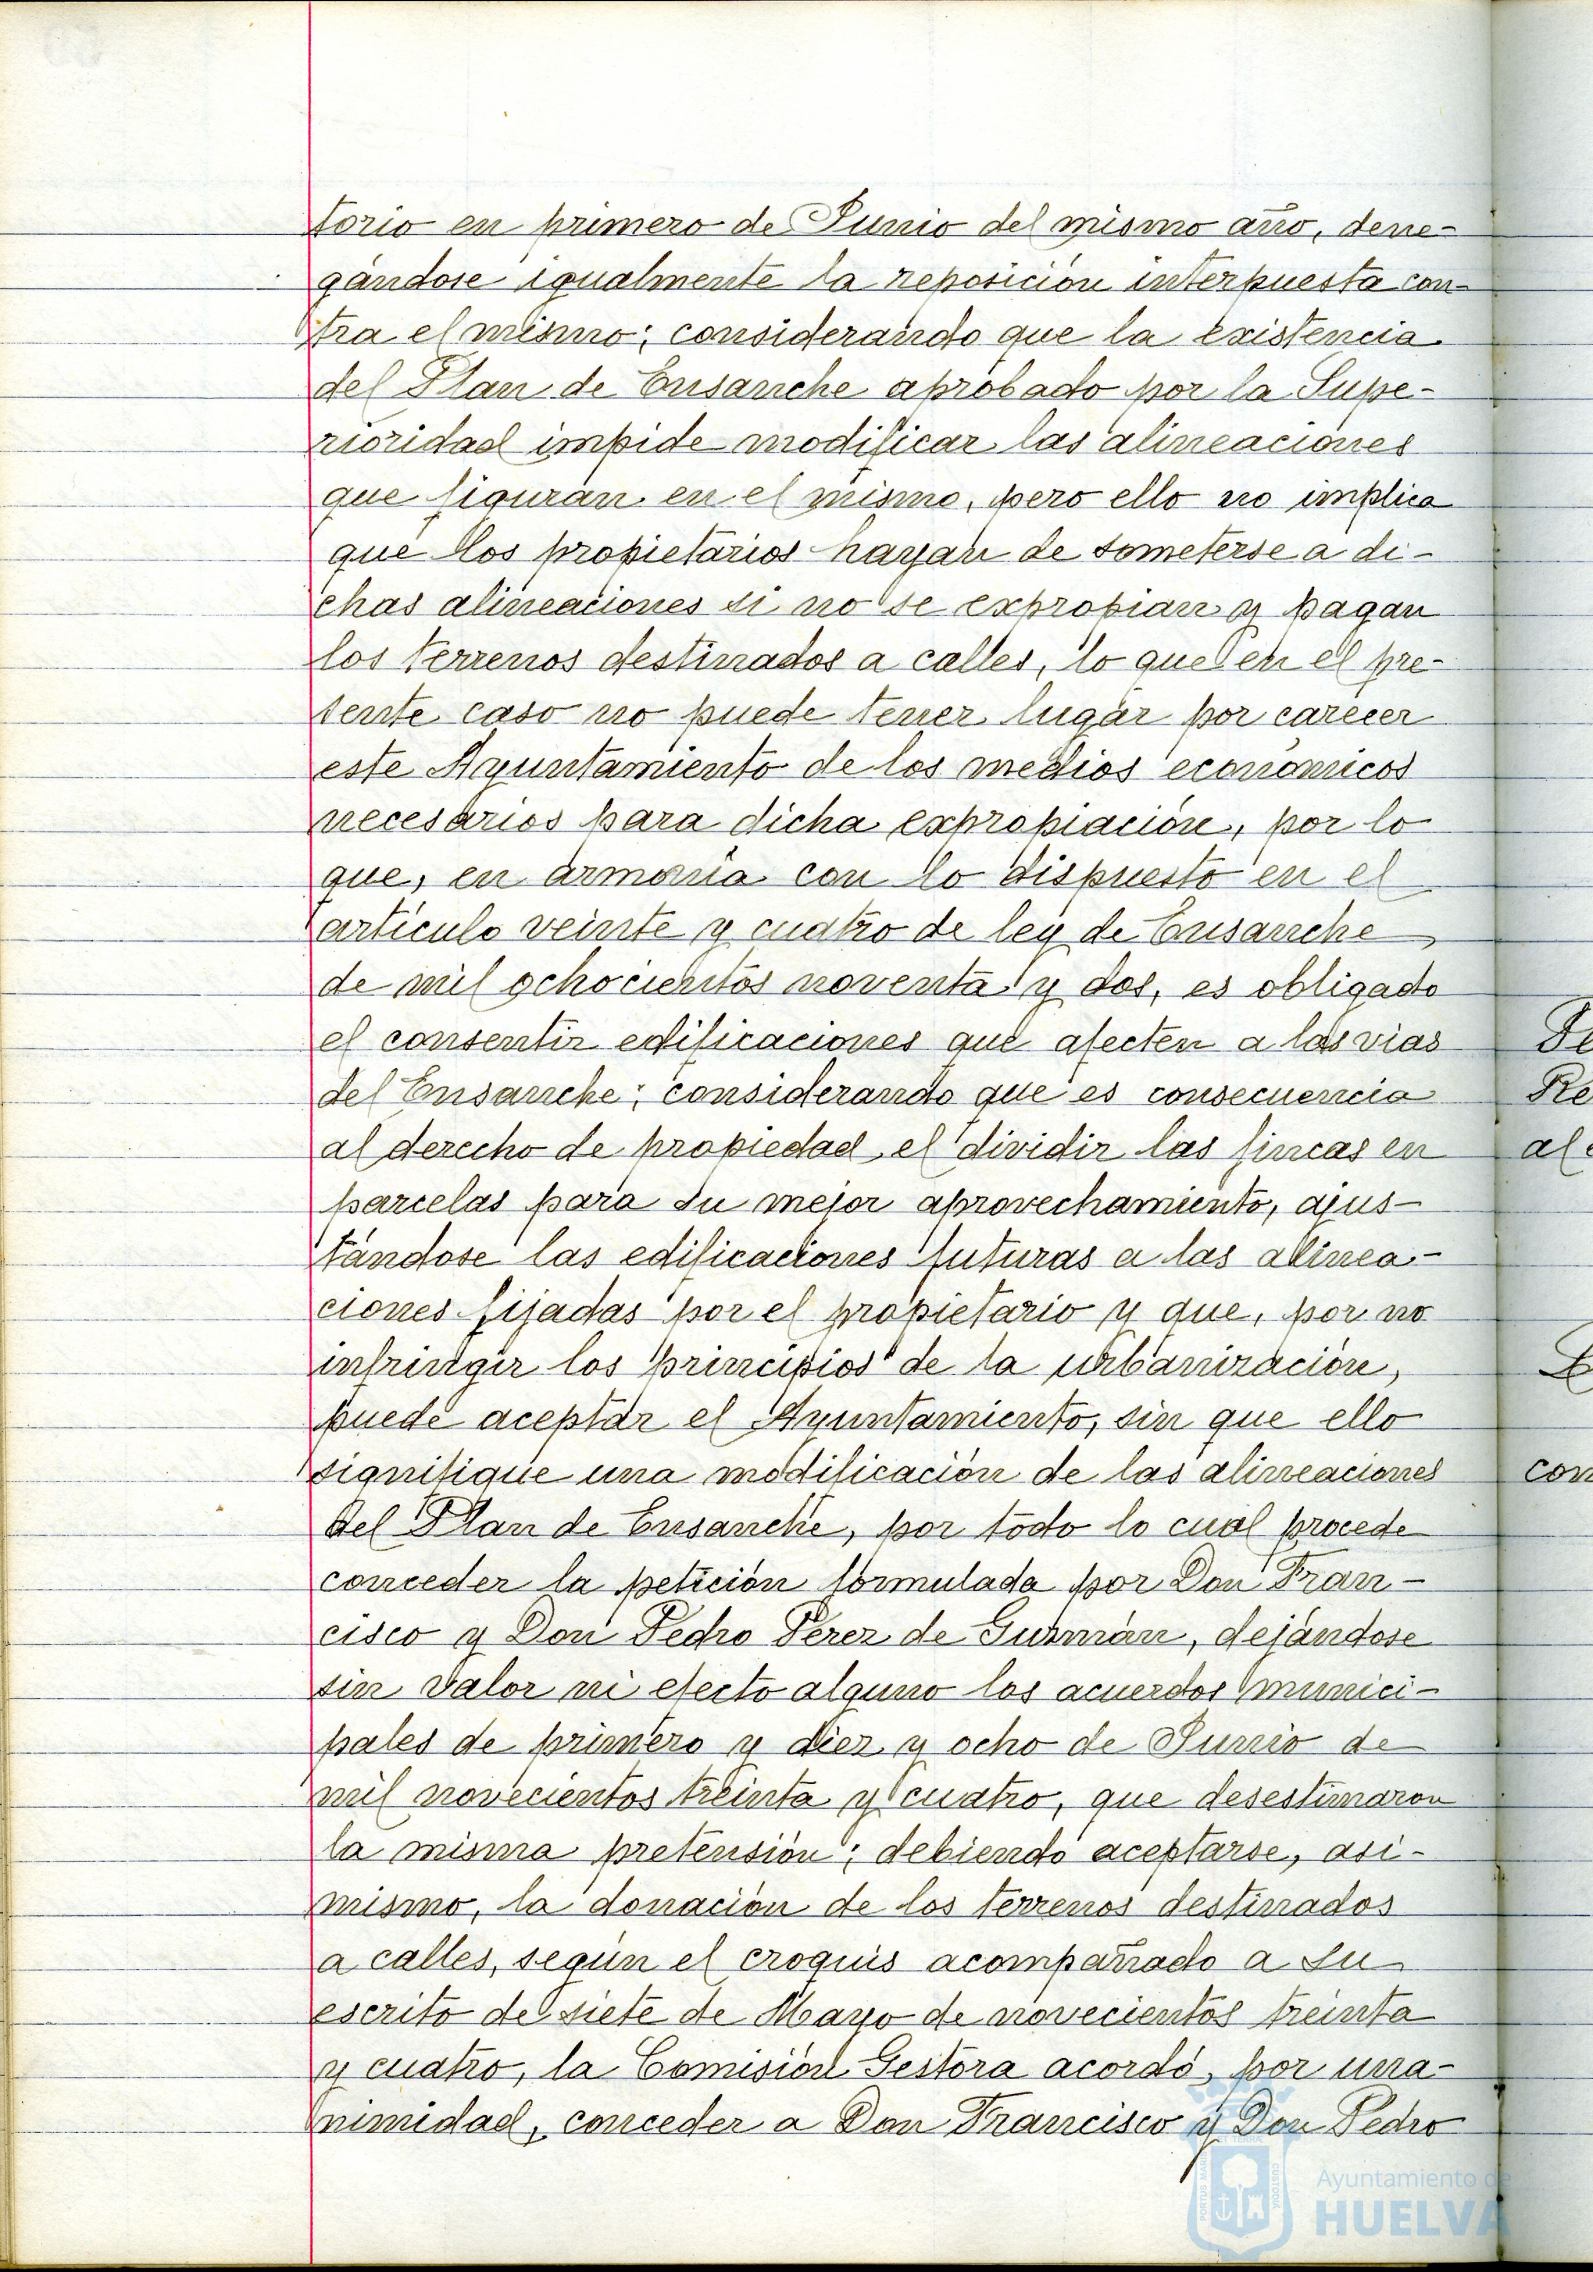 torio en primero de Junio del mismo año, dene-
gándose igualmente la reposición interpuesta con-
tra el mismo; considerando que la existencia
del Plan de Ensanche aprobado por la Supe-
rioridad impide modificar las alineaciones
que figuran en el mismo, pero ello no implica
que los propietarios hayan de someterse a di-
chas alineaciones si no se expropian y pagan
los terrenos destinados a calles, lo que en el pre-
sente caso no puede tener lugar por carecer
este Ayuntamiento de los medios económicos
necesarios para dicha expropiación, por lo
que, en armonía con lo dispuesto en el
artículo veinte y cuatro de ley de Ensanche
de mil ochocientos noventa y dos, es obligado
el consentir edificaciones que afecten a las vias
del Ensanche; considerando que es consecuencia
al derecho de propiedad el dividir las fincas en
parcelas para su mejor aprovechamiento, ajus-
tándose las edificaciones futuras a las alinea-
ciones fijadas por el propietario y que, por no
infringir los principios de la urbanización,
puede aceptar el Ayuntamiento, sin que ello
signifique una modificación de las alineaciones
del Plan de Ensanche, por todo lo cual procede
conceder la petición formulada por Don Fran-
cisco y Don Pedro Perez de Guzmán, dejándose
sin valor ni efecto alguno los acuerdos munici-
pales de primero y diez y ocho de Junio de
mil novecientos treinta y cuatro, que desestimaron
la misma pretensión; debiendo aceptarse, asi-
mismo, la donación de los terrenos destinados
a calles, según el croquis acompañado a su
escrito de siete de Mayo de novecientos treinta
y cuatro, la Comisión Gestora acordó, por una-
nimidad, conceder a Don Francisco y Don Pedro
Re
al
con
Ayuntamiento de
HUELVA